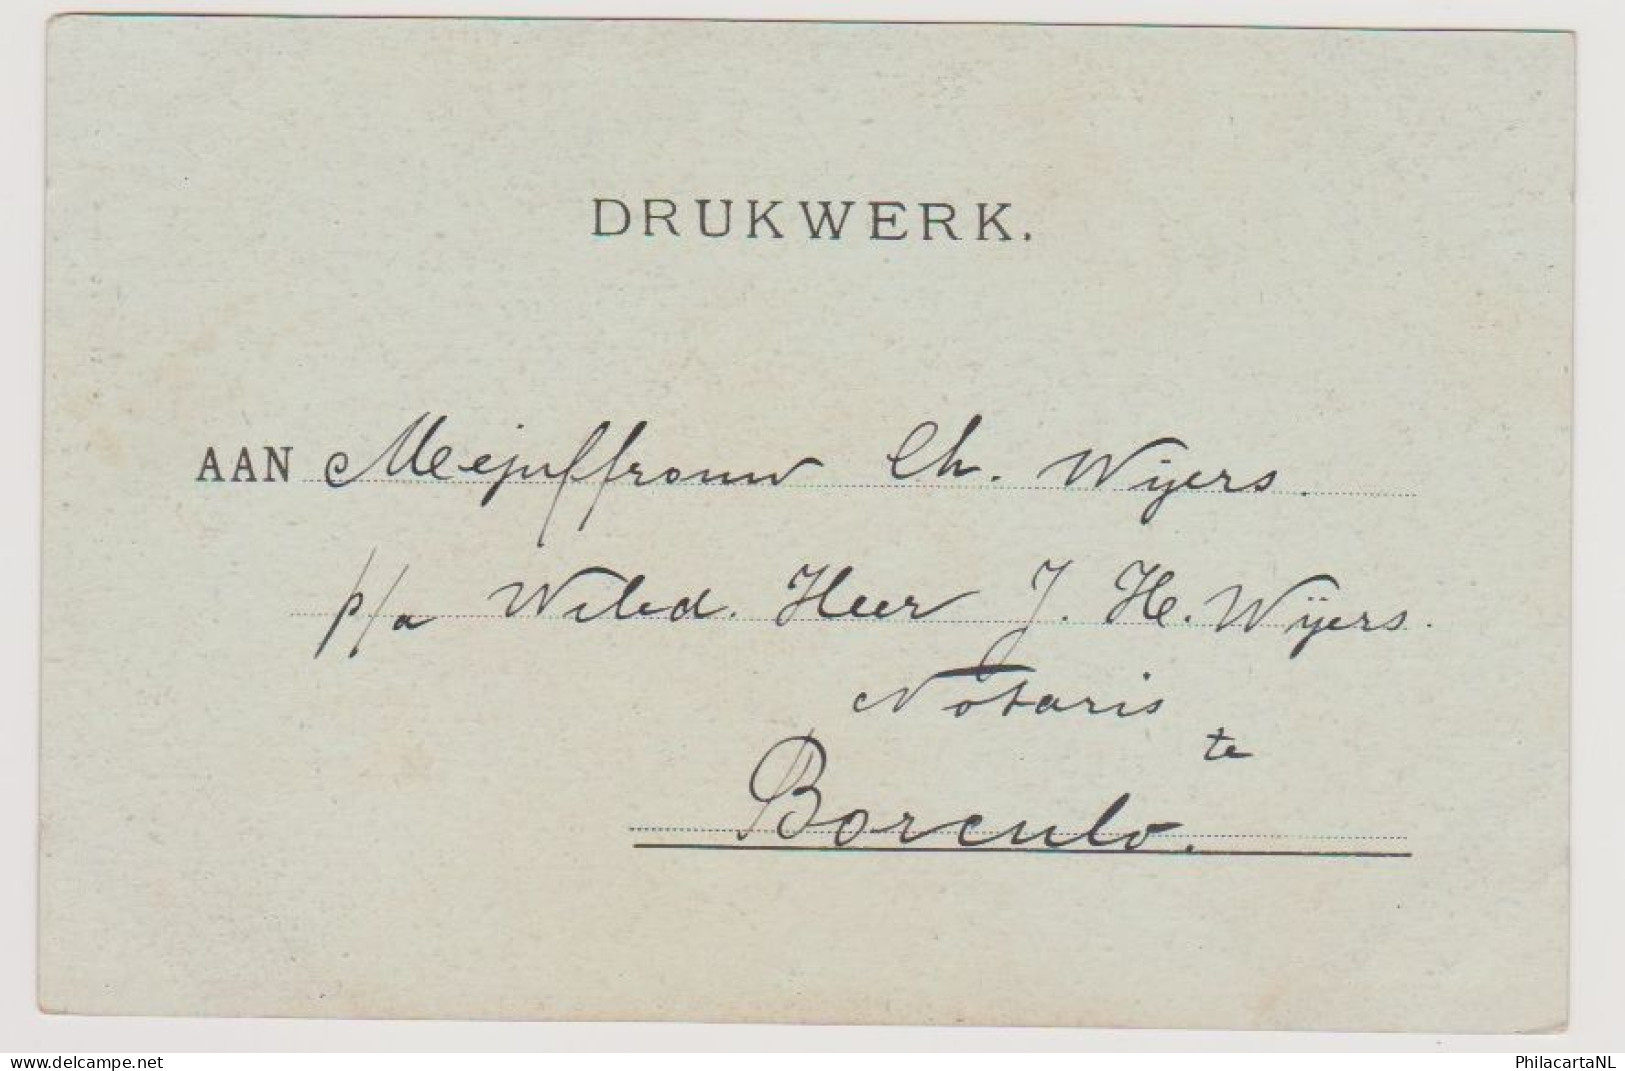 DRUKWERK.
AAN Mejuffrouw Ch. Wijers.
p/a WelEd. Heer J. H. Wijers.
Notaris
te
Borculo.
www.delcampe.net
PhilacartaNL